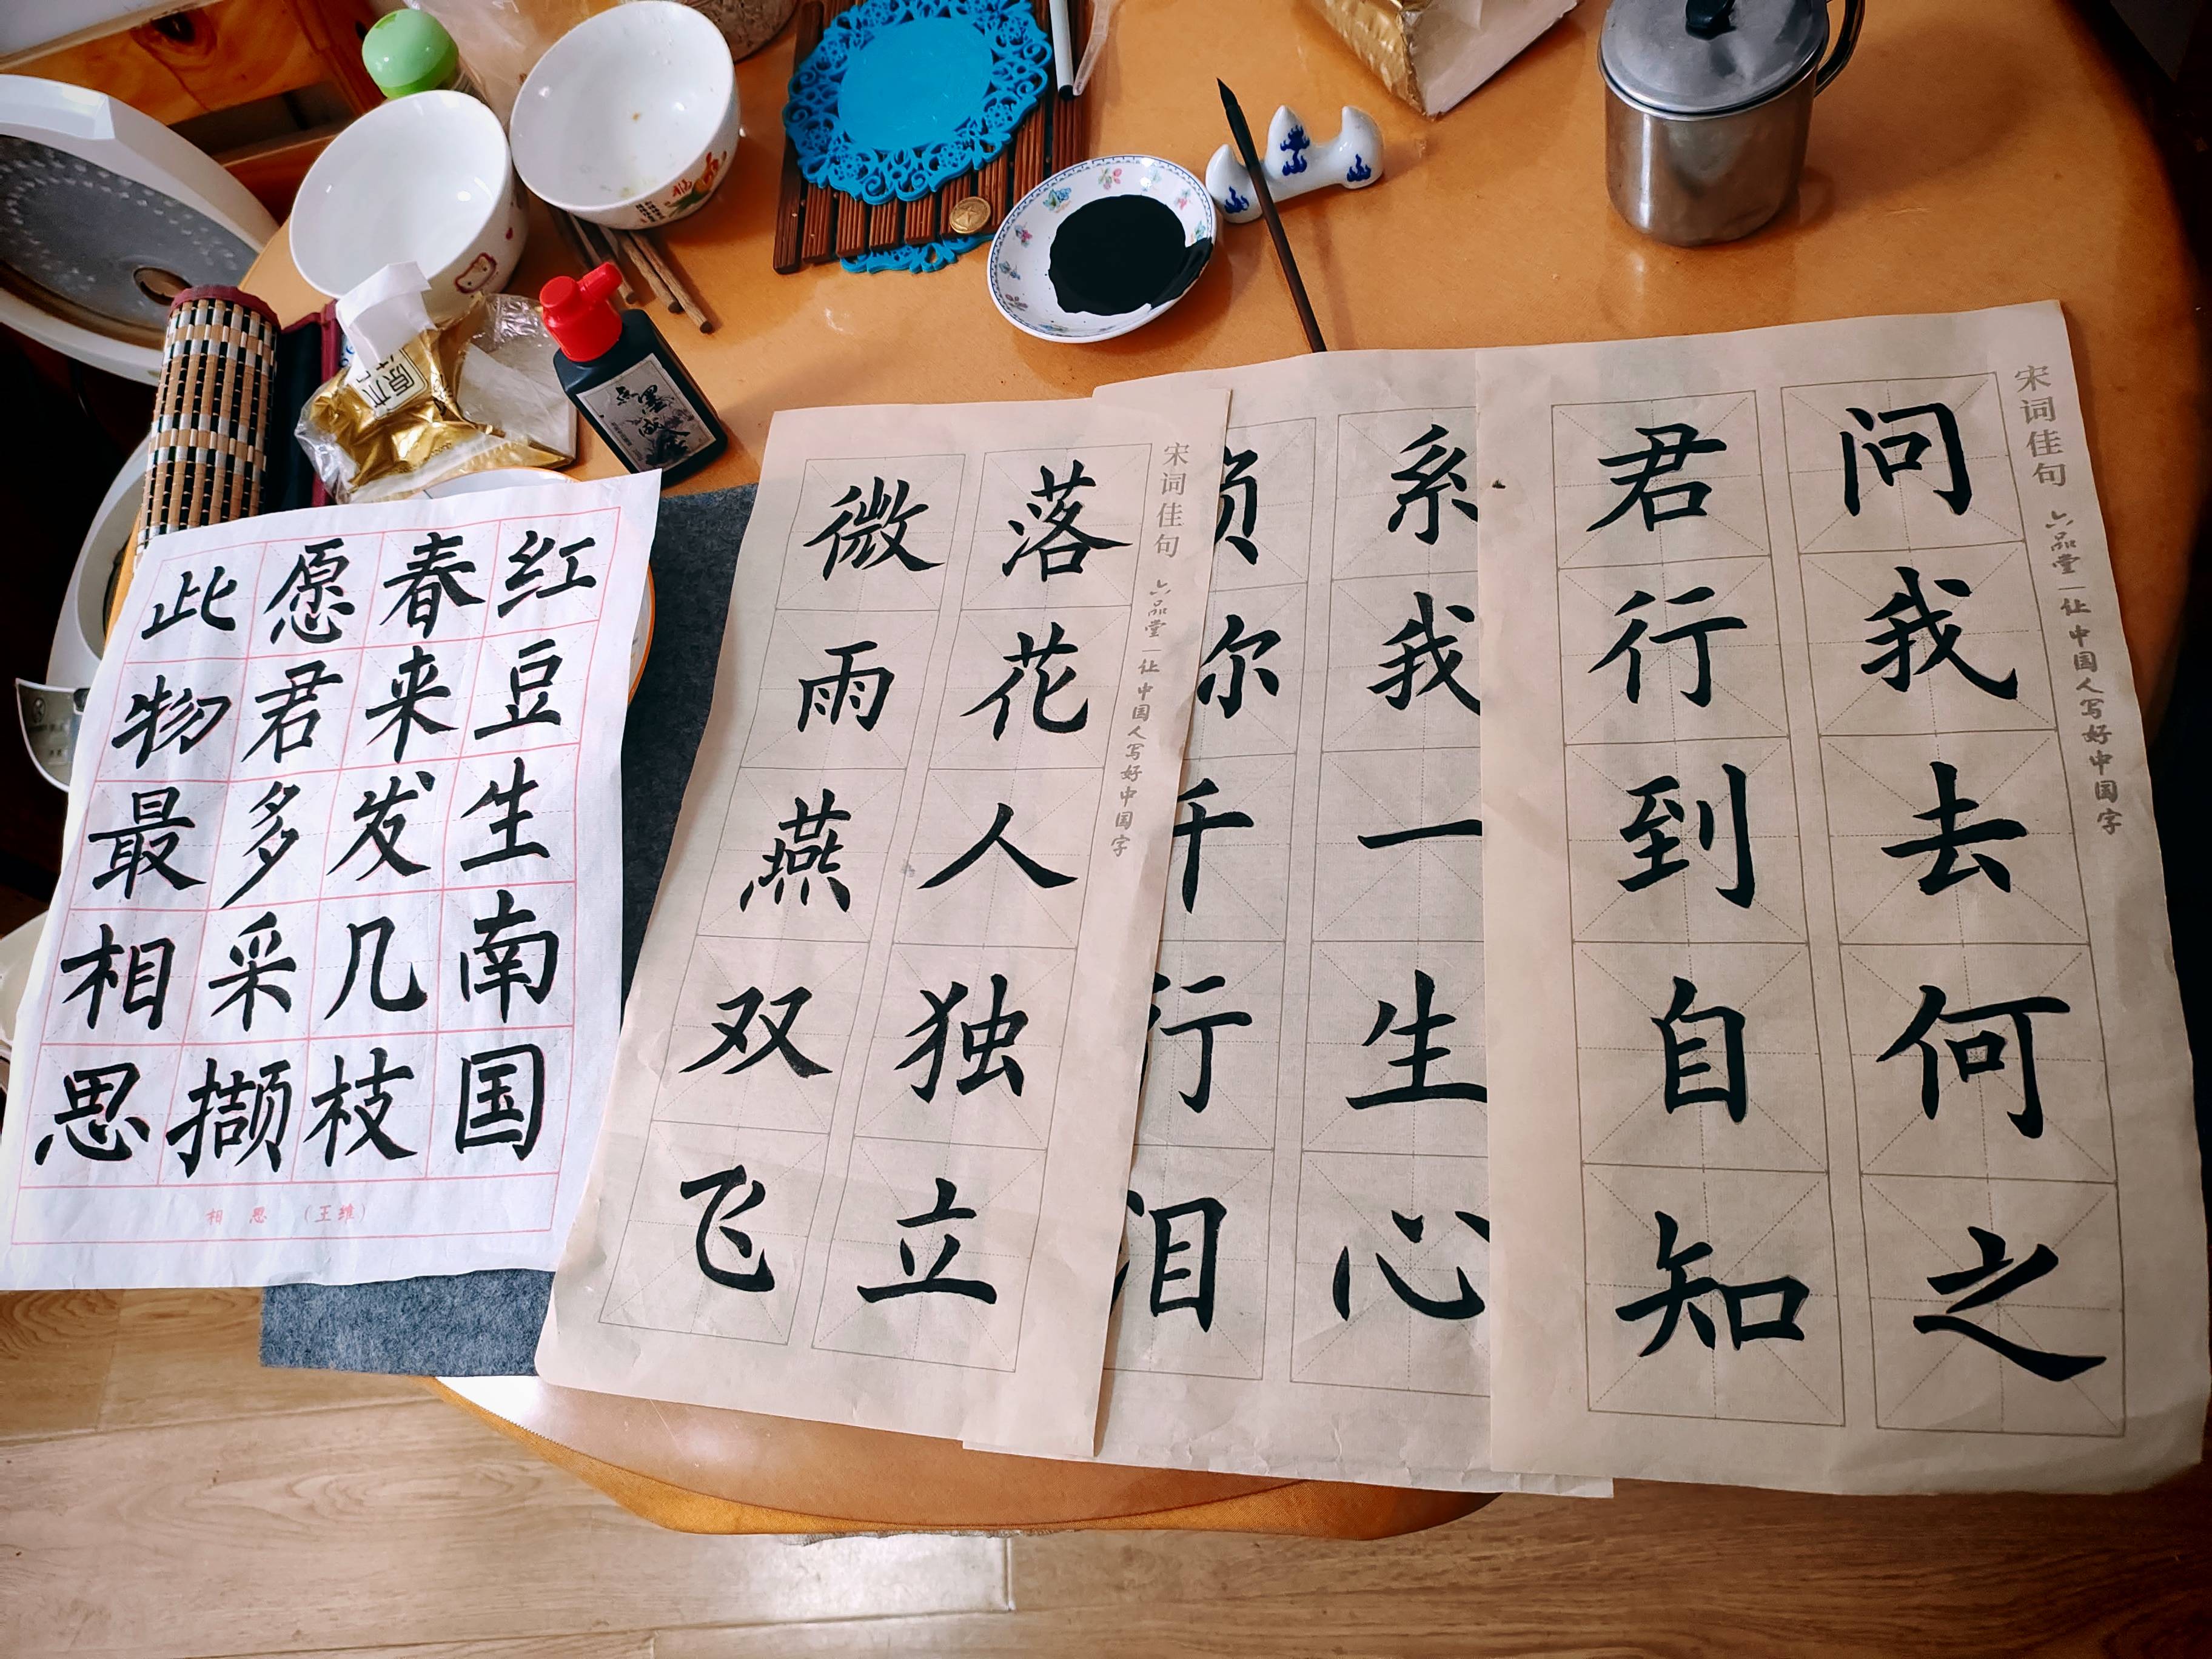 红豆生南国
春来发几枝
愿君多采撷
此物最相思
相思（王维）
宋词佳句 六品堂—让中国人写好中国字
落花人独立
微雨燕双飞
系我一生心
负尔千行泪
宋词佳句 六品堂—让中国人写好中国字
问我去何之
君行到自知